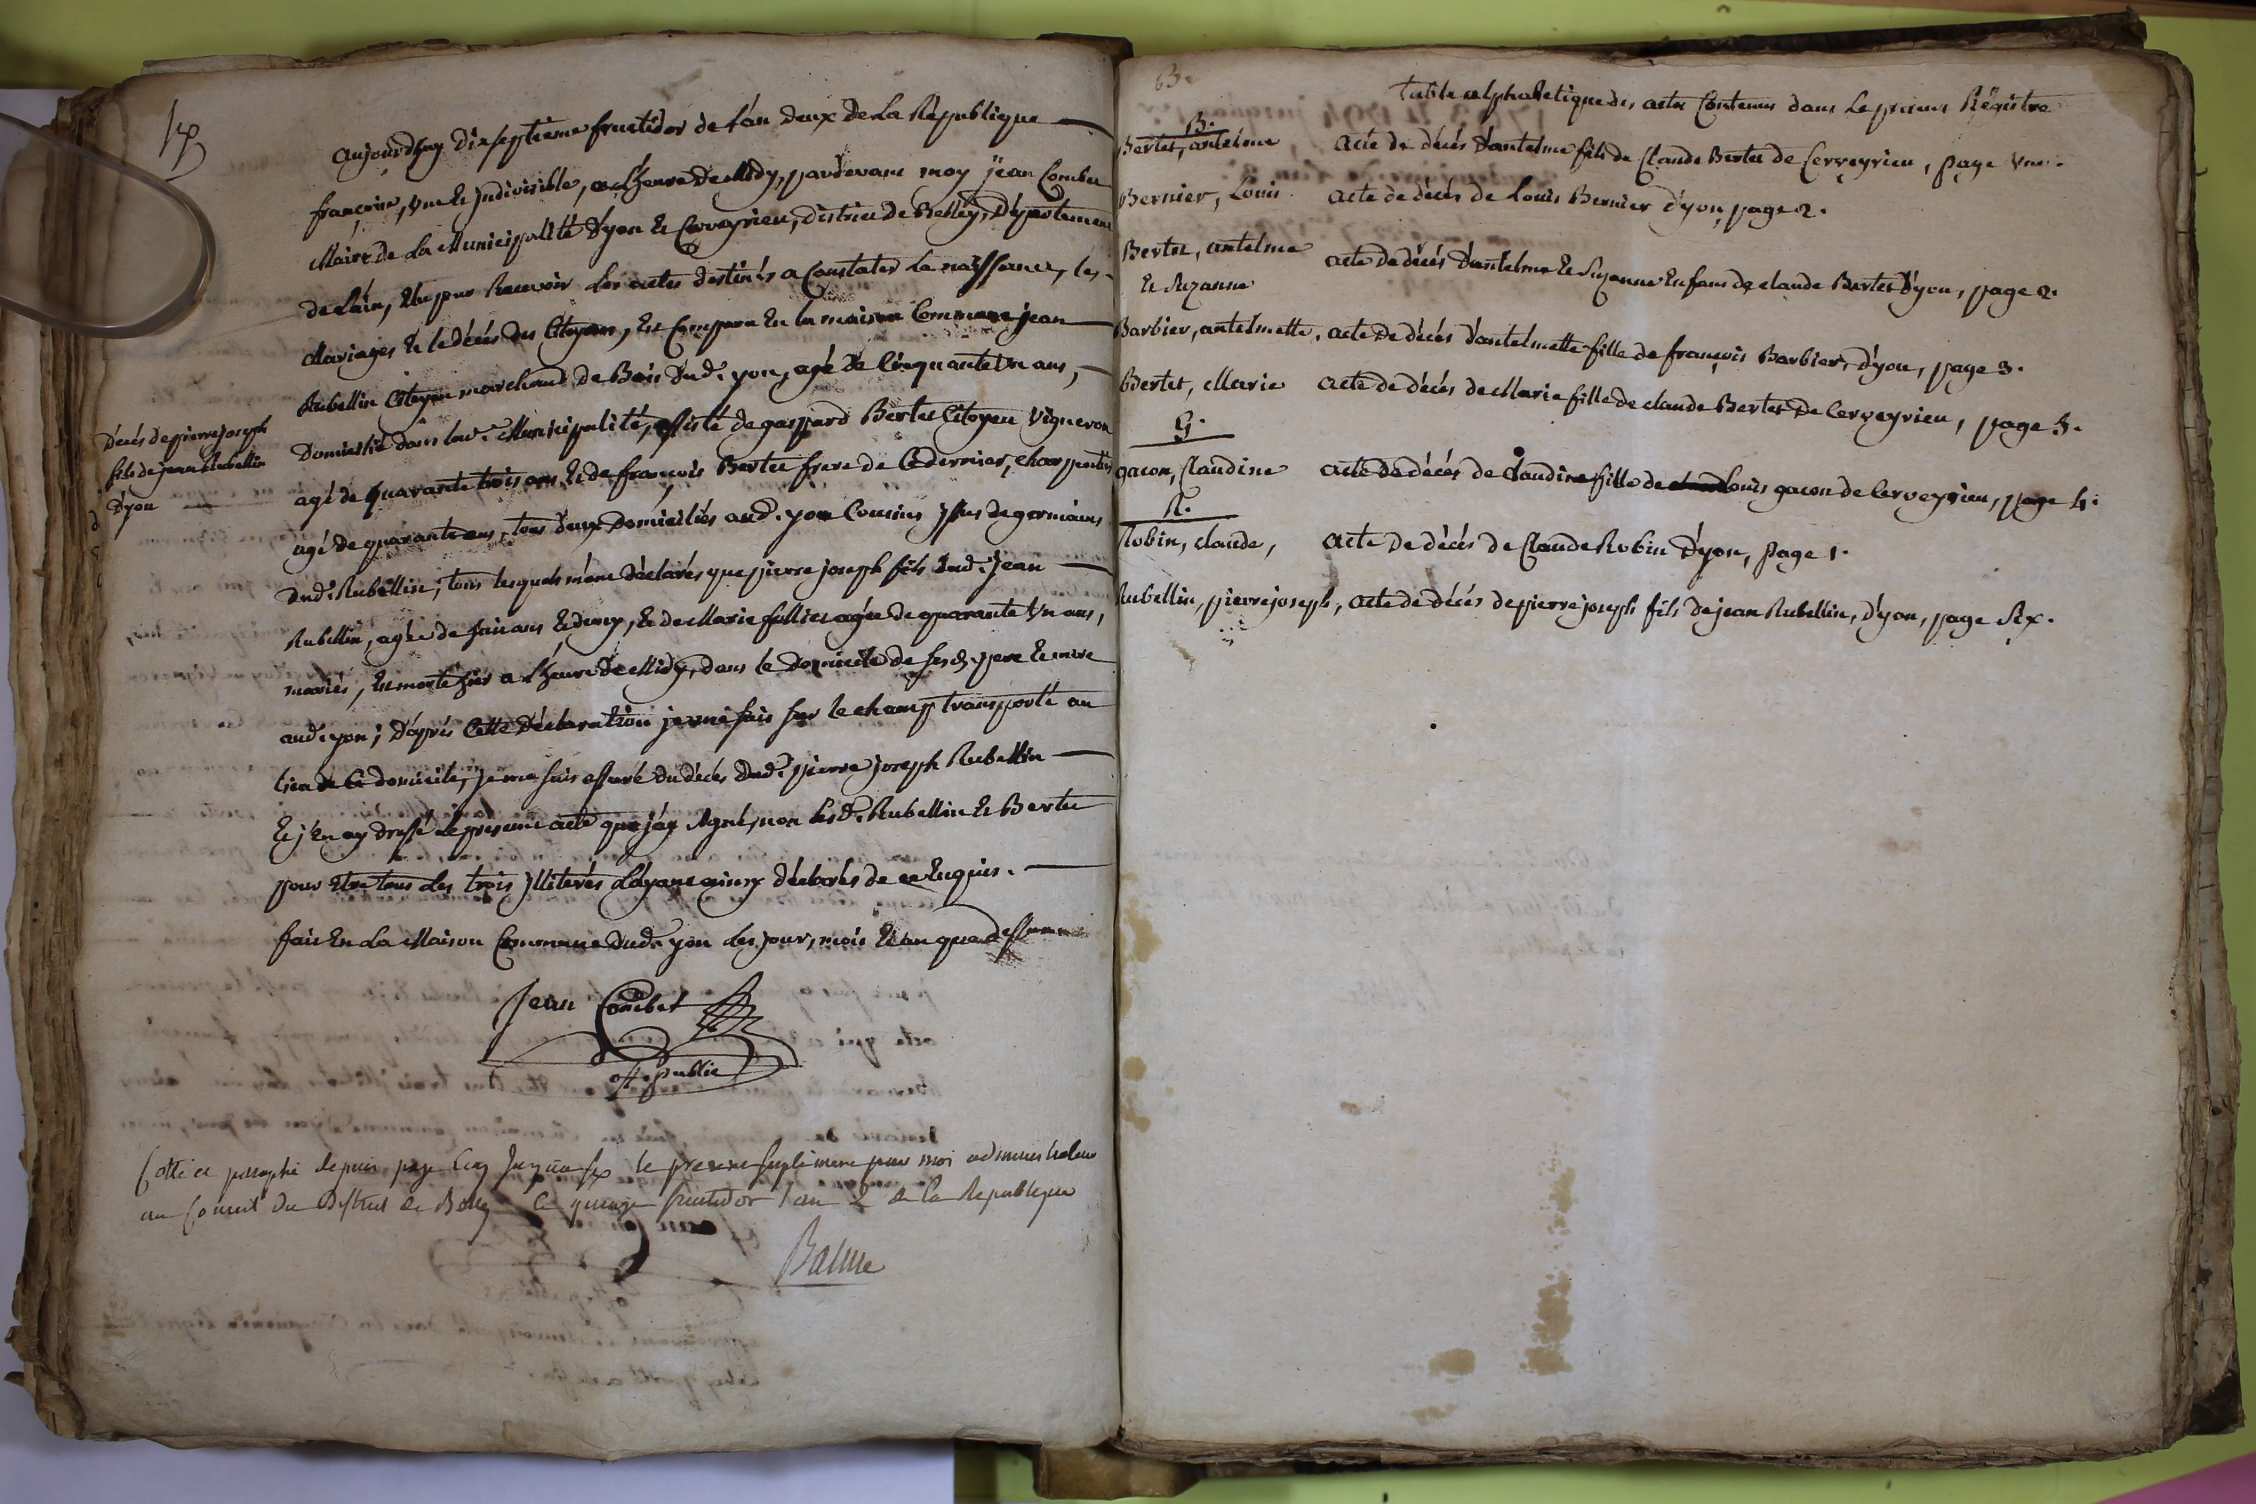 six
Aujourdhuy dixseptieme fructidor de l'an deux de La Republique
françoise, une et jndivisible, a L'heure de Midy, pardevant moy jean Combet
Maire de La Municipalité d'yon et Cerveyrieu, district de Belley, département
de L'ain, Elu pour Recevoir les actes destinés a Constater La naissance, les
Mariages et le décés des Citoyens, Est Comparu En la maison Commune jean
Rubellin Citoyen marchand de Bois dud. yon, agé de Cinquante un ans,
Domicilié dans lad. Municipalité, assisté de gaspard Bertet Citoyen Vigneron
agé de quarante trois ans, Et de françois Bertet frere de Ce dernier, charpentier
agé de quarante ans, tous deux Domiciliés aud. yon Cousins jssus de germains
dud. Rubellin, tous lesquels m'ont déclarés que pierre joseph fils dud. jean
Rubellin, agée de ans Et demy, Et de Marie follict agée de quarante Un ans,
mariés, Est morte hier a L'heure de Midy, dans le domicile de sesd. pere Et mere
aud. yon; d'aprés Cette déclaration je me suis sur le champ transporté au
lieu de Ce domicile, je me suis assuré du décés dud. pierre joseph Rubellin
Et j'En ay dressé le present acte que j'ay signé, non lesd. Rubellin Et Bertet
pour Etre tous les trois jlliterés L'ayant ainsy déclarés de ce Enquis.
fait En La Maison Commune dud. yon les jour, mois Et an que dessus
Décés de pierre joseph
fils de jean Rubellin
d'yon
Jean Combet
off. public
Cotté et paraphé depuis page cinq jusqua six le present suplement par moi administrateur
au Conseil du District de Belley le quinze fructidor l'an 2 de la Republique
Balme
63.
Table alphabetique des actes Contenus dans Le present Régistre
B.
Bertet, antelme acte de décés d'antelme fils de Claude Bertet de Cerveyrieu, page une.
Bernier, Louis acte de décés de Louis Bernier d'yon, page 2.
Bertet, antelme
et Suzanne acte de décés d'antelme Et Suzanne Enfans de claude Bertet d'yon, page 2.
Barbier, antelmette, acte de décés d'antelmette fille de françois Barbier, d'yon, page 3.
Bertet, Marie acte de décés de Marie fille de claude Bertet de Cerveyrieu, page 5.
G.
gacon, Claudine acte de décés de Claudine fille de Louis gacon de Cerveyrieu, page 4.
R.
Robin, claude, acte de décés de Claude Robin d'yon, page 1.
Rubellin, pierre joseph, acte de décés de pierre joseph fils de jean Rubellin, d'yon, page Six.